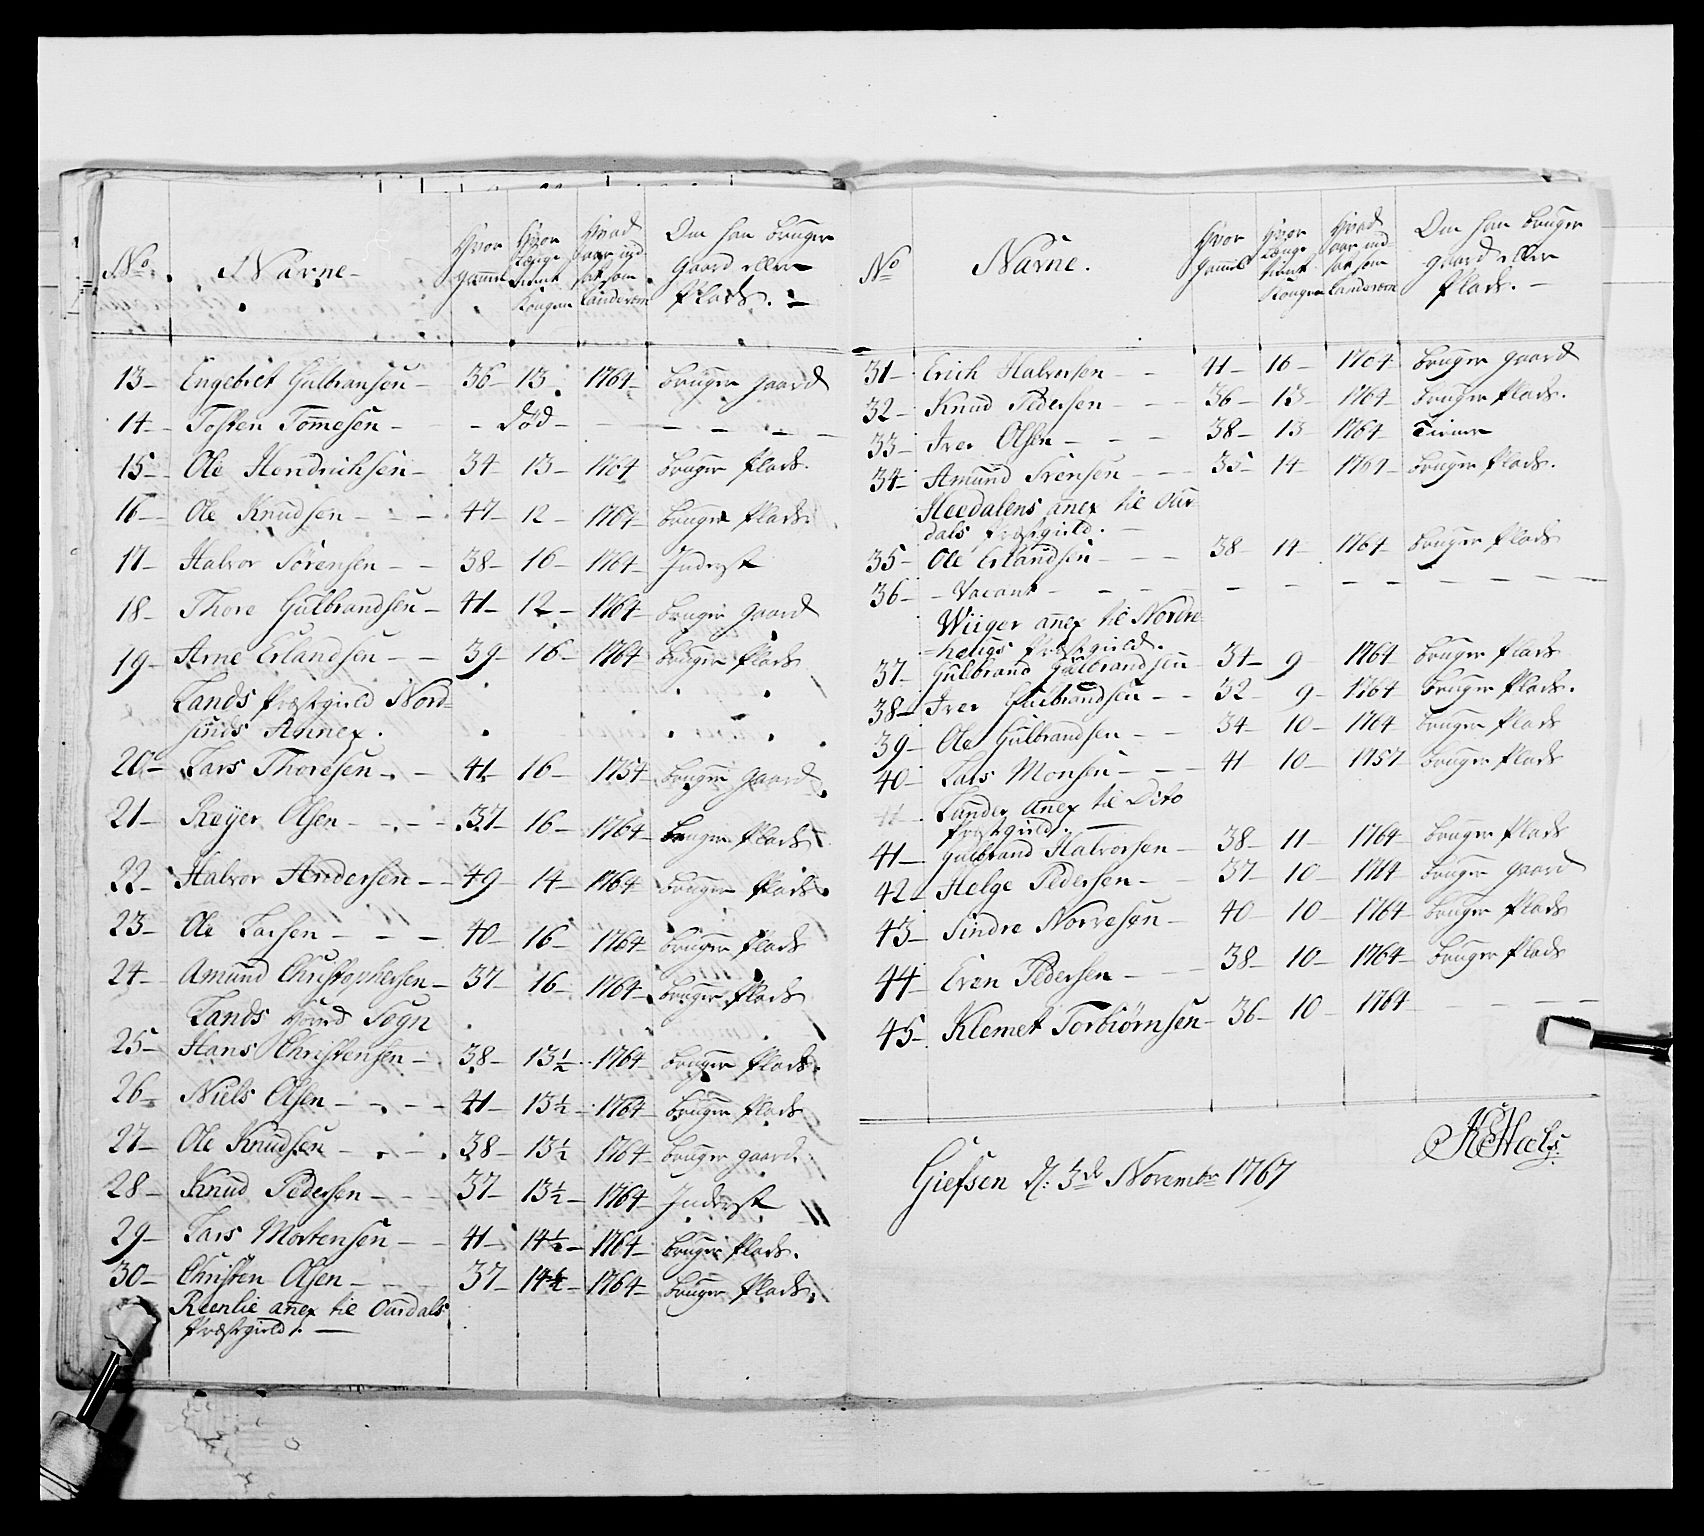 No. Navne. Hvor gammel Hvor længe tient Kongen Hvad aar ind sat som Landevern Om han bruger gaard eller Plads.
13 Engebret Gulbransen 36 13 1764 bruger gaard
14 Tosten Tomesen - død - - - -
15 Ole Hendrichsen 34 13 1764 bruger Plads.
16 Ole Knudsen 47 12 1764 bruger Plads.
17 Halvor Sørensen 38 16 1764 Inderst
18 Thore Gulbrandsen 41 12 1764 bruger gaard
19 Arne Erlandsen 39 16 1764 bruger Plads
Lands Præstgield Nord=
sinds Annex.
20 Lars Thoresen 41 16 1754 bruger gaard
21 Reyer Olsen 37 16 1764 bruger Plads
22 Halvor Andersen 49 14 1764 bruger Plads.
23 Ole Larsen 40 16 1764 bruger Plads
24 Amund Christophersen 37 16 1764 bruger Plads
Lands Hoved Sogn
25 Hans Christensen 38 13½ 1764 bruger Plads.
26 Niels Olsen 41 13½ 1764 bruger Plads
27 Ole Knudsen 38 13½ 1764 bruger gaard.
28 Knud Pedersen 37 13½ 1764 Inderst
29 Lars Mortensen 41 14½ 1764 bruger Plads.
30 Christen Olsen 37 14½ 1764 bruger Plads.
Reenlie anex til Ourdals
Præstgield.
No Navne. Hvor gammel Hvor længe tient Kongen Hvad aar ind sat som Landevern Om han bruger gaard eller Plads.
31 Erich Halvorsen 41 16 1764 bruger gaard
32 Knud Pedersen 36 13 1764 bruger Plads.
33 Iver Olsen 38 13 1764 Tiener
34 Amund Svensen 35 14 1764 bruger Plads.
Heedalens anex til Our
dals Præstgield.
35 Ole Erlandsen 38 14 1764 bruger Plads
36 - Vacant - - - - - -
Wiiger anex til Nordre
hougs Præstgield.
37 Gulbrand Gulbrandsen 34 9 1764 bruger Plads
38 Iver Gulbrandsen 32 9 1764 bruger Plads.
39 Ole Gulbrandsen 34 10 1764 bruger Plads
40 Lars Monsen 41 10 1757 bruger Plads
Lunder anex til Dito
Præstgield.
41 Gulbrand Halvorsen 38 11 1764 bruger Plads
42 Helge Pedersen 37 10 1764 bruger gaard
43 Sindre Norvesen 40 10 1764 bruger Plads
44 Even Pedersen 38 10 1764 bruger Plads
45 Klemet Torbiørnsen 36 10 1764 - - -
Giefsen d: 3de Novembr 1767